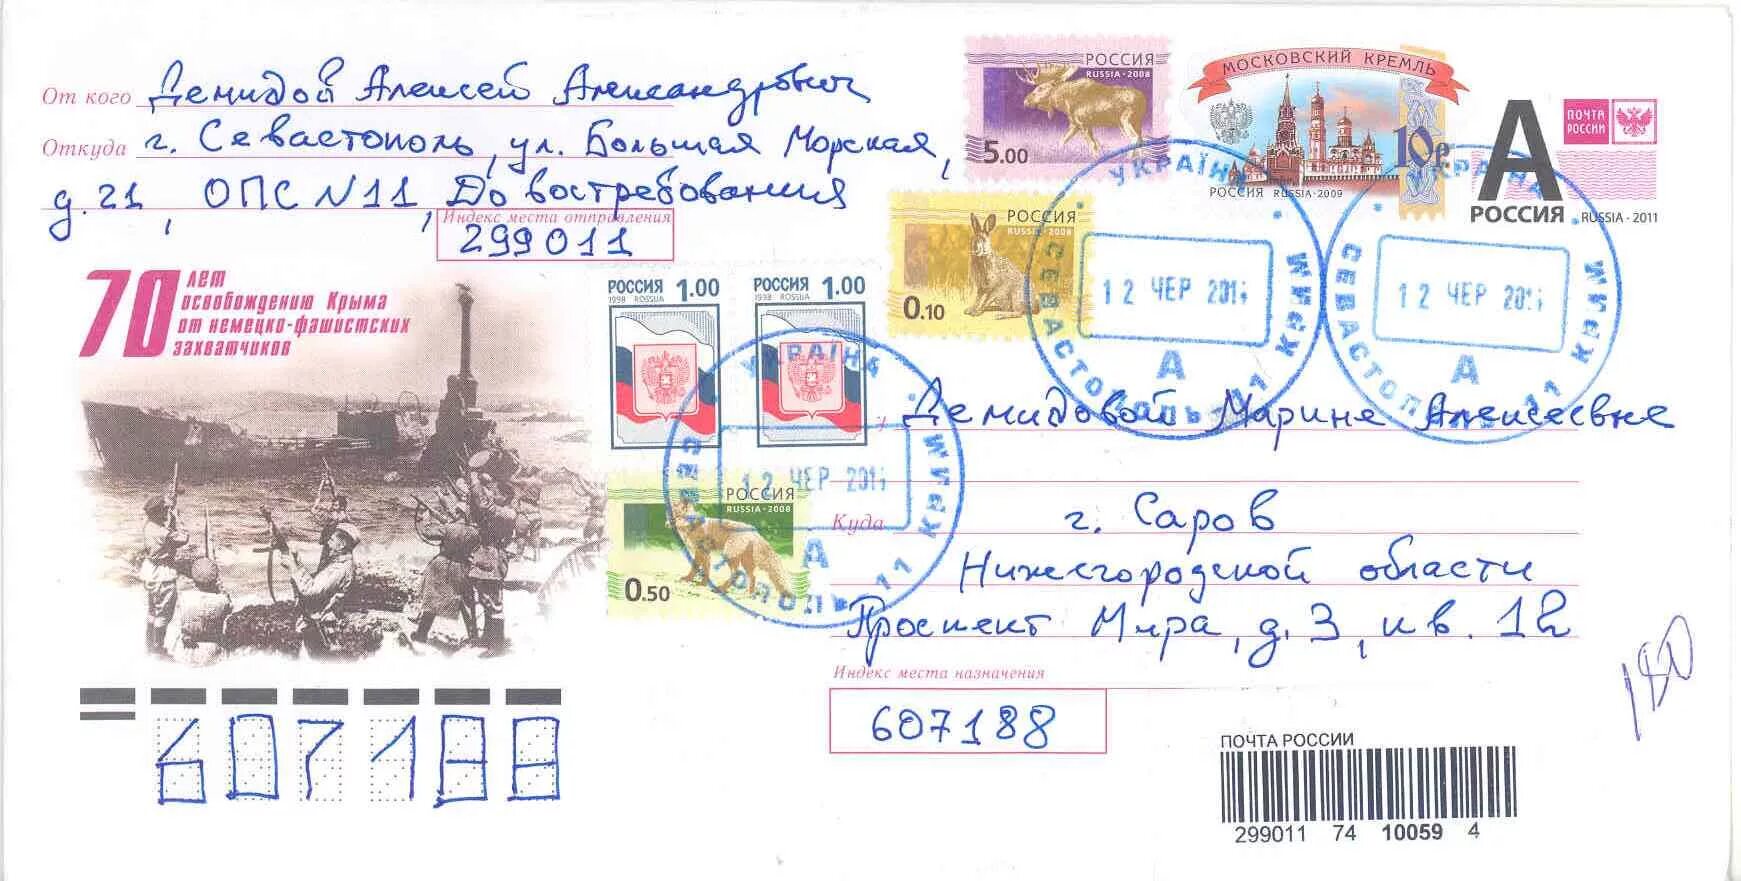 От кого Демидов Алексей Александрович
Откуда г. Севастополь, ул. Большая Морская,
д. 21, ОПС N11, До востребования
Индекс места отправления
299011
70 лет
освобождению Крыма
от немецко-фашистских
захватчиков
РОССИЯ
RUSSIA · 2008
5.00
МОСКОВСКИЙ КРЕМЛЬ
10р
РОССИЯ RUSSIA 2009
А
РОССИЯ
RUSSIA · 2011
ПОЧТА
РОССИИ
РОССИЯ
RUSSIA · 2008
0.10
РОССИЯ 1.00
1998 ROSSIJA
РОССИЯ 1.00
1998 ROSSIJA
РОССИЯ
RUSSIA · 2008
0.50
УКРАЇНА
12 ЧЕР 201
А
СЕВАСТОПОЛЬ 11 КРИМ
УКРАЇНА
12 ЧЕР 201
А
СЕВАСТОПОЛЬ 11 КРИМ
УКРАЇНА
12 ЧЕР 201
А
СЕВАСТОПОЛЬ 11 КРИМ
Демидовой Марине Алексеевне
Куда г. Саров
Нижегородской области
Проспект Мира, д. 3, кв. 12
Индекс места назначения
607188
607188
180
ПОЧТА РОССИИ
299011 74 10059 4